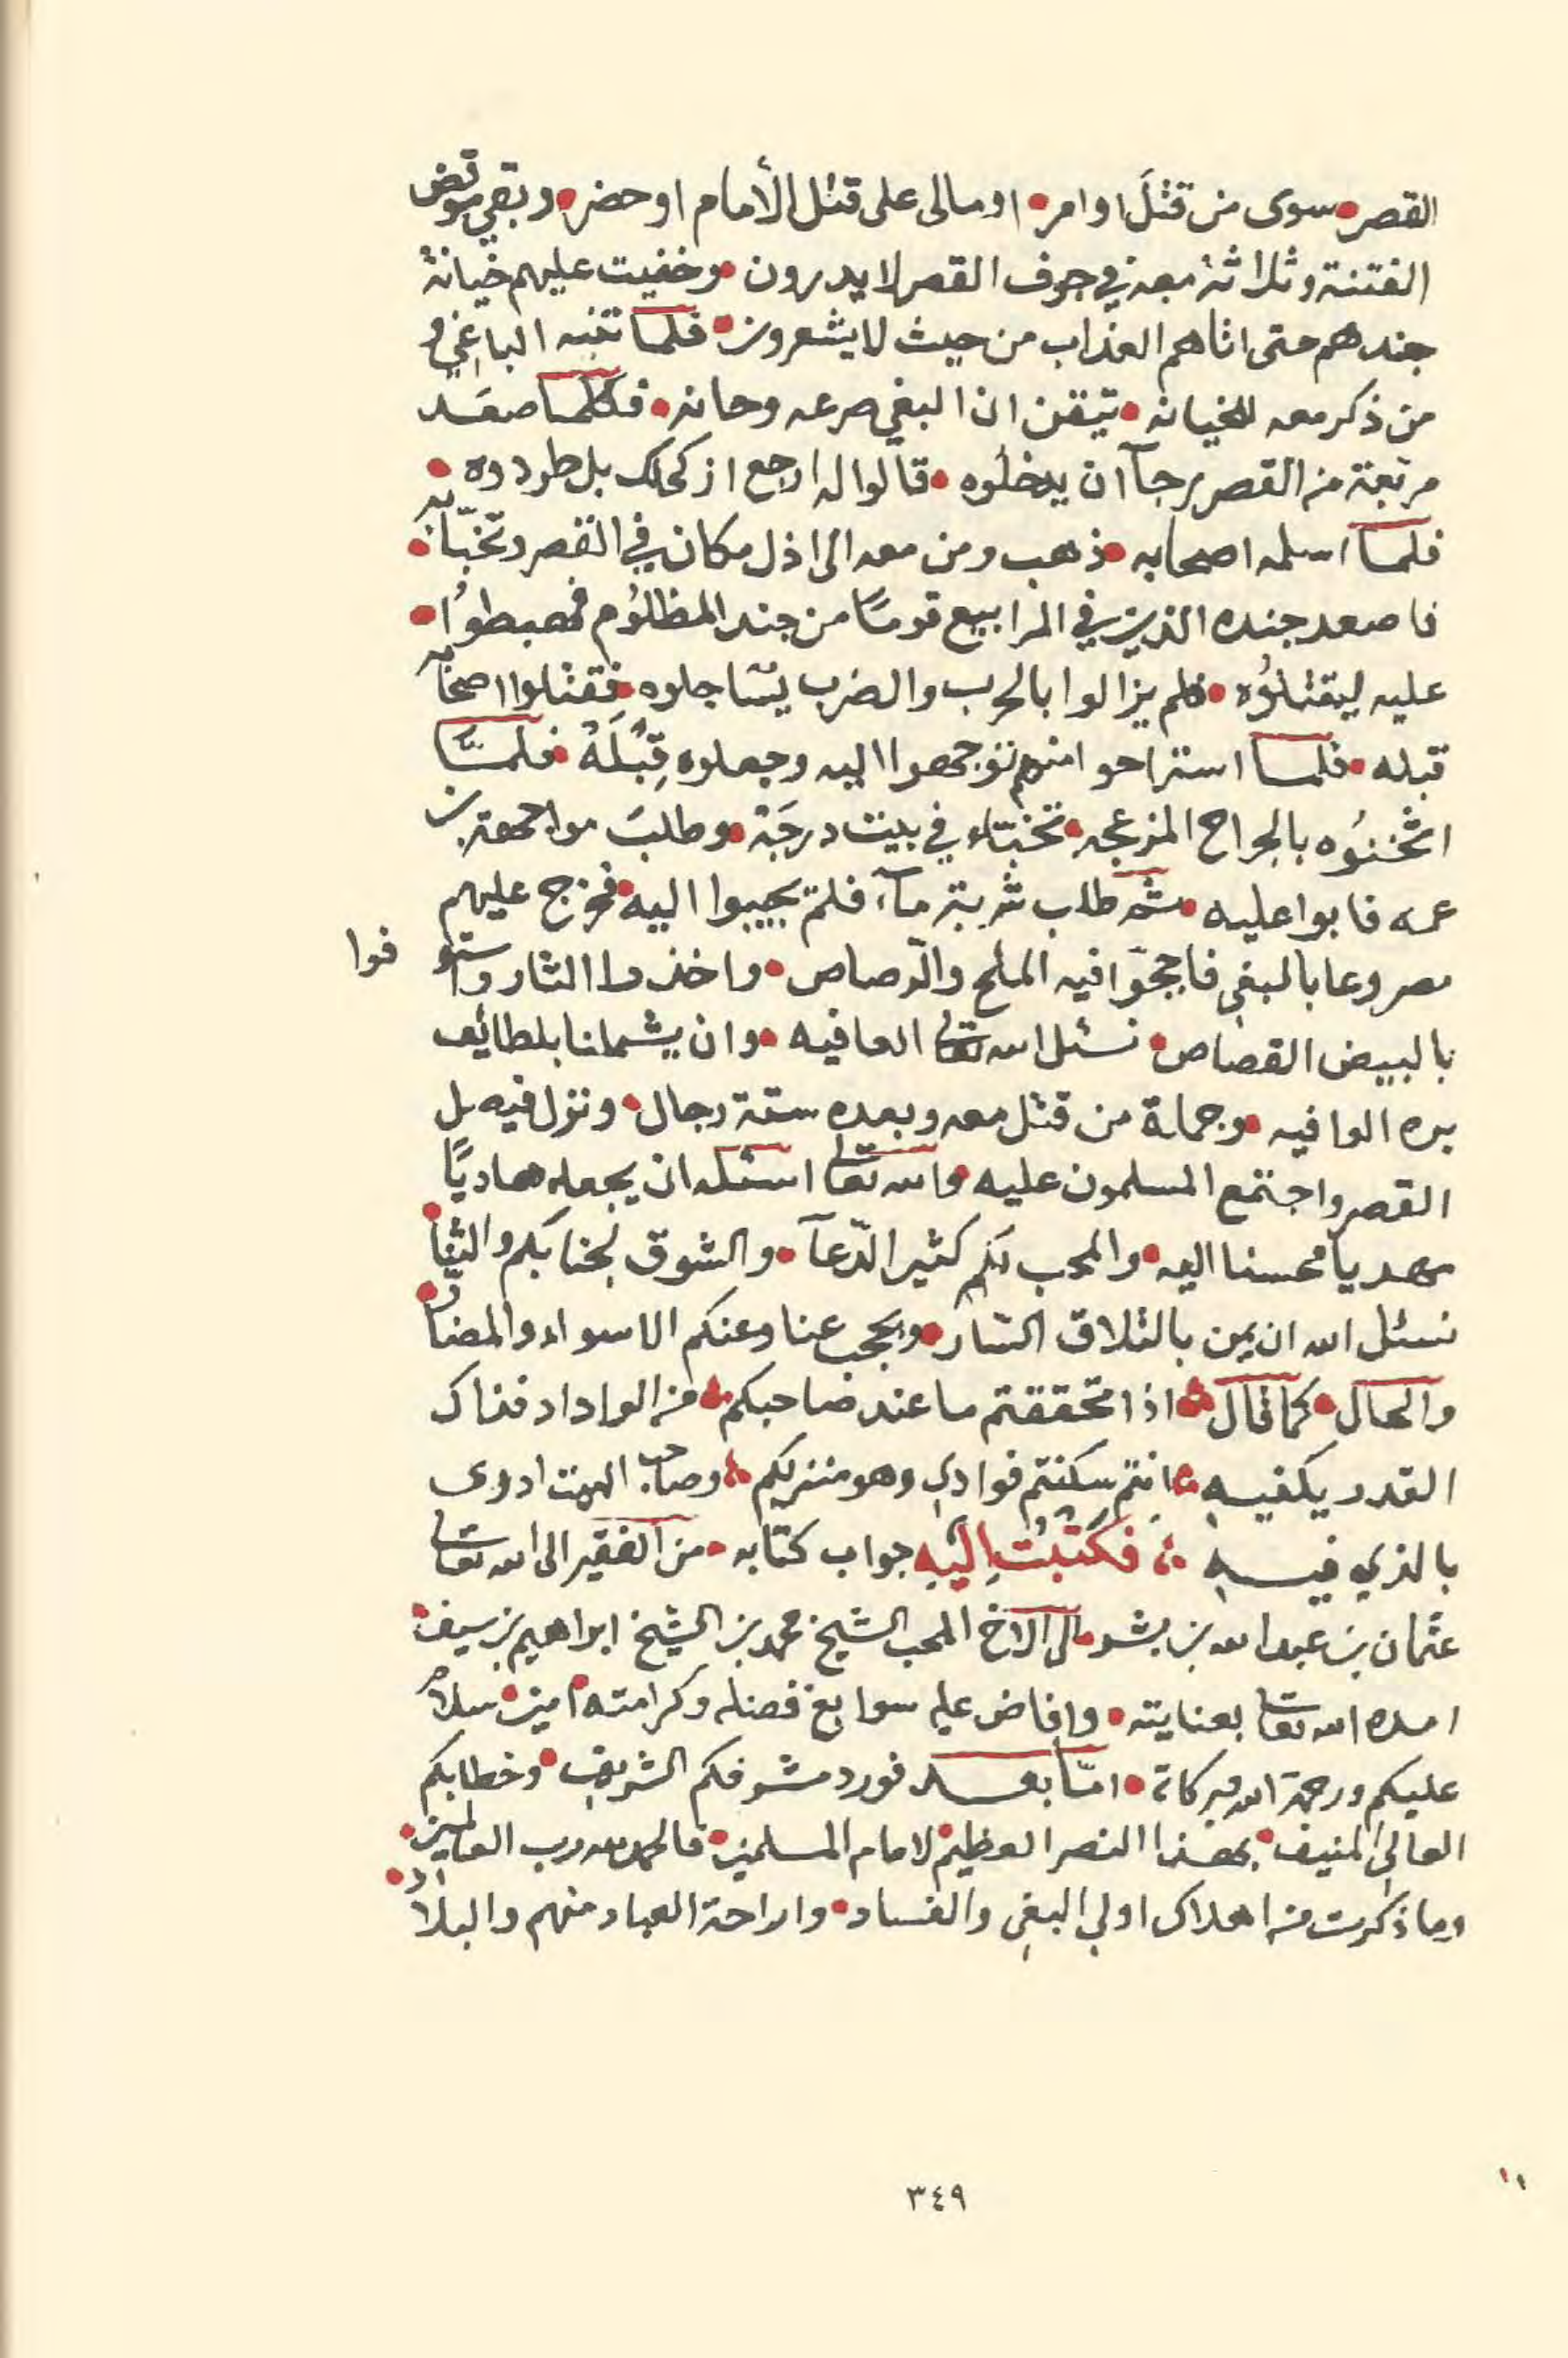 القصر سوى من قتل او امر اومالى على قتل الأمام اوحضر وبقي موقض
الفتنة وثلاثة معه في جوف القصر لا يدرون وخفيت عليهم خيانة
جندهم حتى اتاهم العذاب من حيث لا يشعرون فلما تنبه الباغي و
من ذكر معه للخيانه تيقن ان البغي صرعه وحانه فكلما صعد
مربعة من القصر يرجآ ان يدخلوه قالوا له ارجع از كحلك بل طردوه
فلما اسلمه اصحابه ذهب ومن معه الى اذل مكان في القصر وتخبّابه
فاصعد جنده الذين في المرابيع قومًا من جند المظلوم فهبطوا
عليه ليقتلوه فلم يزالوا بالحرب والضرب يساجلوه فقتلوا اصحابه
قبله فلما استراحوا منهم توجهوا اليه وجعلوه قِبْلَةً فلمّا
اثخنوه بالجراح المزعجه تخبّاء في بيت درجَة وطلبَ مواجهة بن
عمه فابوا عليه ثم طلب شربة مآء فلم يجيبوا اليه فخرج عليهم
مصروعا بالبغي فاججوا فيه الملح والرّصاص واخذوا الثار واستو فوا
بالبيض القصاص نسئل الله تعالى العافيه وان يشملنا بلطائف
بره الوافيه وجملة من قتل معه وبعده ستة رجال ونزل فيصل
القصر واجتمع المسلمون عليه والله تعالى اسئله ان يجعله هاديًا
مهديا محسنا اليه والمحب لكم كثير الدّعآ والشوق لجنابكم والثنا
نسئل الله ان يمن بالتلاق السّار ويحجب عنا وعنكم الاسواء والمضارّ
والحال كما قال اذا تحققتم ما عند صاحبكم من الوداد فذاك
القدر يكفيه انتم سكنتم فوادي وهو منزلكم وصاحب البيت ادرى
بالذي فيه فكتبتُ اليهِ جواب كتابه من الفقير الى الله تعالى
عثمان بن عبدالله بن بشر الى الاخ المحب الشيخ محمد بن الشيخ ابراهيم بن سيف
امده الله تعالى بعنايته وافاض عليه سوابغ فضله وكرامته امين سلام
عليكم ورحمة الله وبركاته امّا بعد فورد مشرفكم الشريف وخطابكم
العالي المنيف بهذا النصر العظيم لامام المسلمين فالحمد لله رب العالمين
وما ذكرت من اهلاك اولي البغي والفساد واراحة العباد منهم والبلاد
٣٤٩